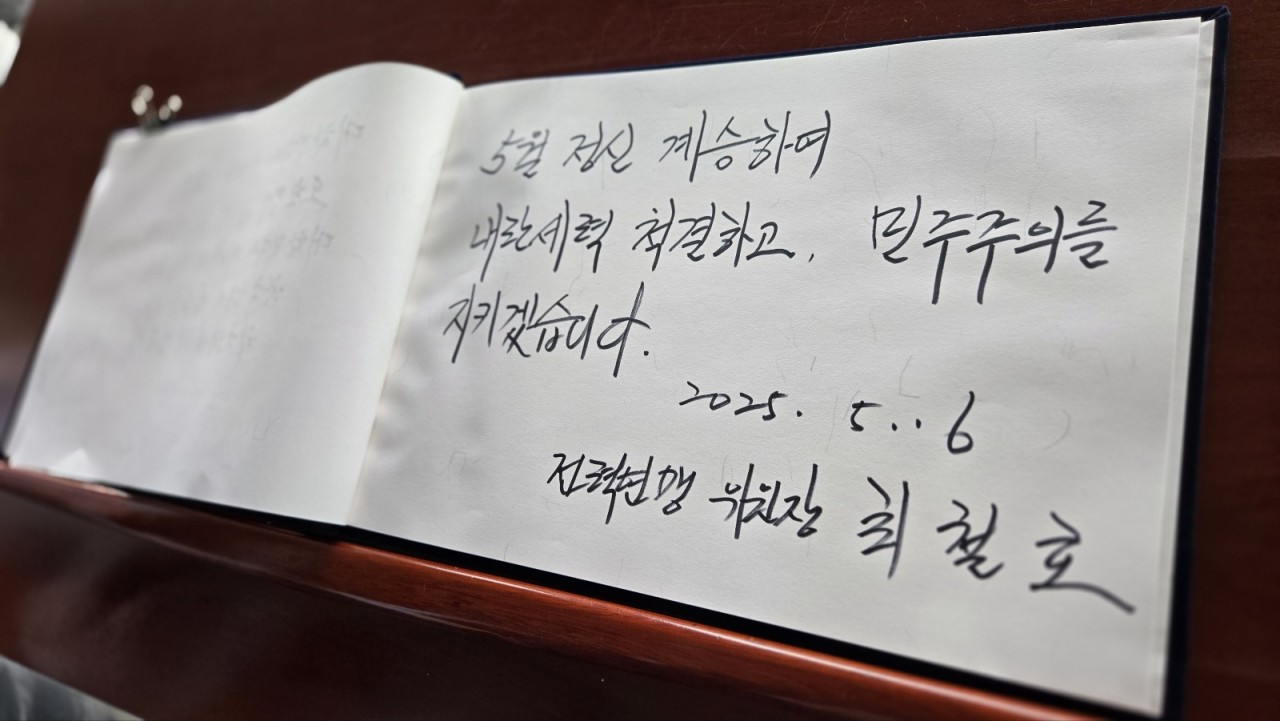 5월 정신 계승하여
내란세력 척결하고, 민주주의를
지키겠습니다.
2025. 5.. 6
전력연맹 위원장 최철호